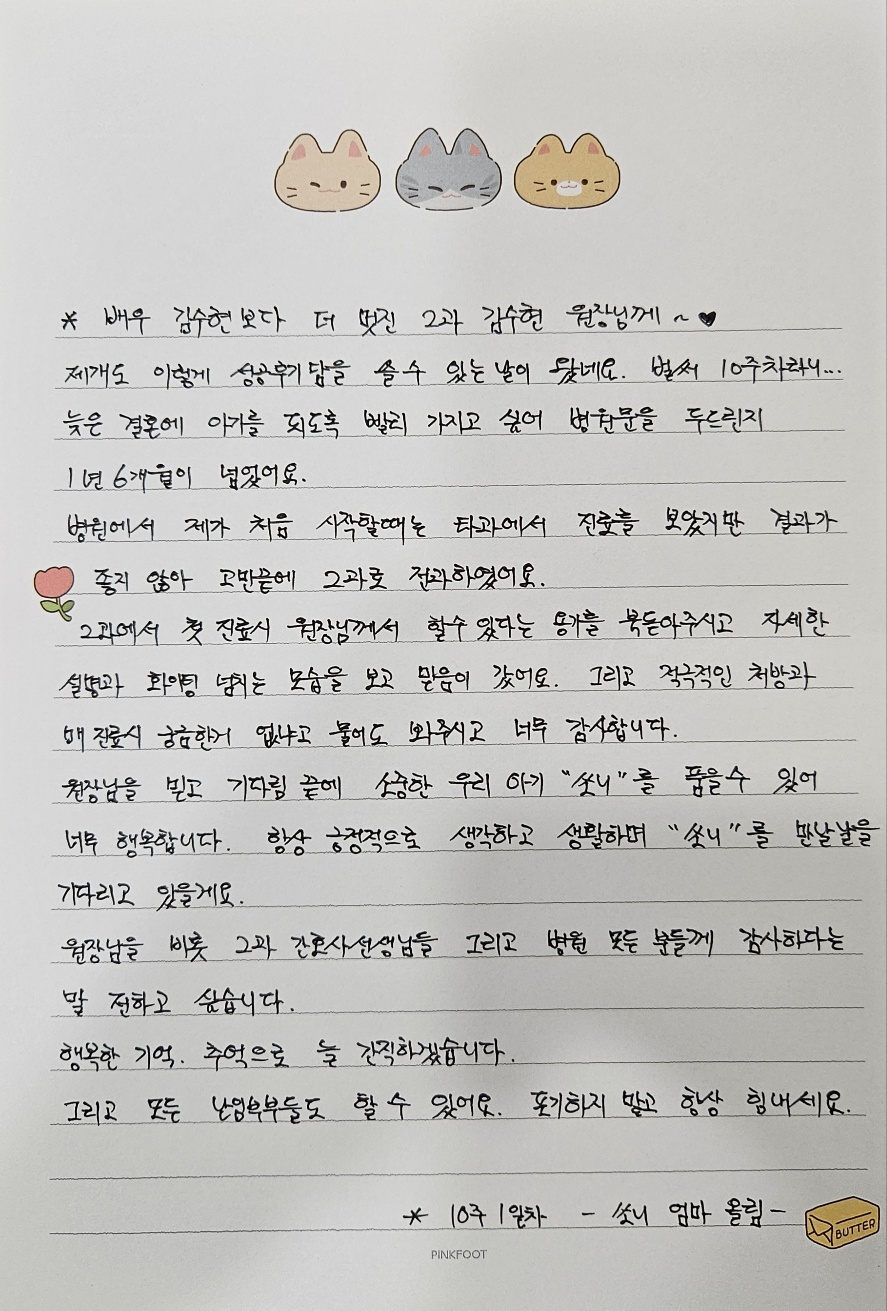 * 배우 김수현보다 더 멋진 2과 김수현 원장님께 ~ ♥
제게도 이렇게 성공후기답을 쓸 수 있는 날이 왔네요. 벌써 10주차라니...
늦은 결혼에 아가를 되도록 빨리 가지고 싶어 병원문을 두드린지
1년 6개월이 넘었어요.
병원에서 제가 처음 시작할때는 타과에서 진료를 보았지만 결과가
좋지 않아 고민끝에 2과로 전과하였어요.
2과에서 첫 진료시 원장님께서 할수 있다는 용기를 북돋아주시고 자세한
설명과 화이팅 넘치는 모습을 보고 믿음이 갔어요. 그리고 적극적인 처방과
매 진료시 궁금한거 없냐고 물어도 봐주시고 너무 감사합니다.
원장님을 믿고 기다림 끝에 소중한 우리 아기 "쏘니"를 품을수 있어
너무 행복합니다. 항상 긍정적으로 생각하고 생활하며 "쏘니"를 만날날을
기다리고 있을게요.
원장님을 비롯 2과 간호사선생님들 그리고 병원 모든 분들께 감사하다는
말 전하고 싶습니다.
행복한 기억. 추억으로 늘 간직하겠습니다.
그리고 모든 난임부부들도 할 수 있어요. 포기하지 말고 항상 힘내세요.
* 10주 1일차 - 쏘니 엄마 올림 -
BUTTER
PINKFOOT